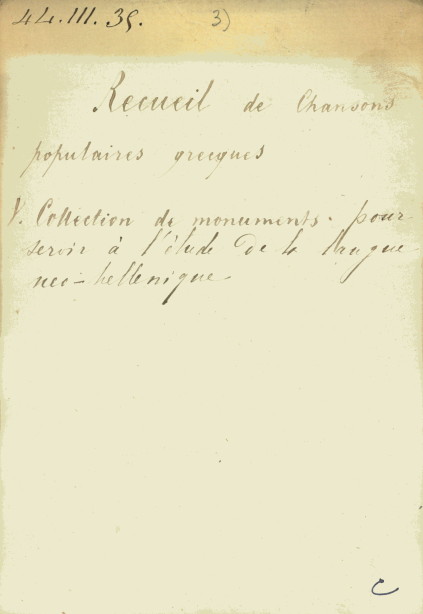 44.III.39. 3)
Recueil de Chansons
populaires grecques
V. Collection de monuments. pour
servir à l'étude de la langue
neo-hellenique
C